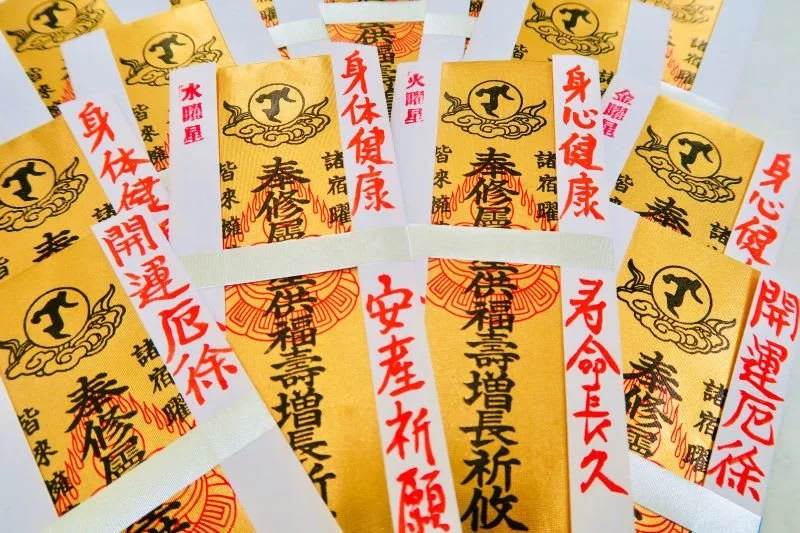 水曜星
身体健康
安産祈願
諸宿曜
奉修靈
供福壽増長祈
皆來擁
火曜星
身心健康
寿命長久
諸宿曜
奉修靈
供福壽増長祈攸
皆來擁
金曜星
身心健
皆來擁
奉
開運厄徐
諸宿曜
奉修靈
皆來擁
身体健
諸
奉
皆來
開運厄徐
諸宿曜
奉修靈
皆來擁
供福壽